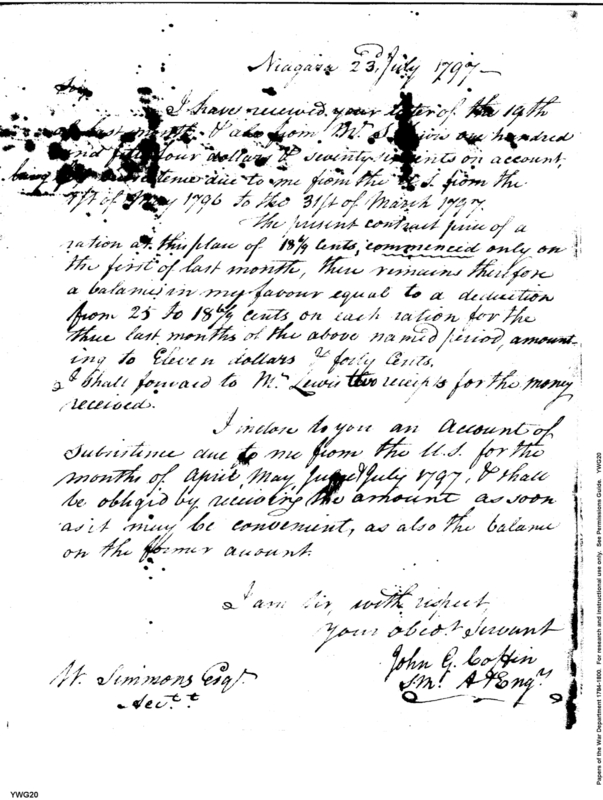 Niagara 23d July 1797
Sir,
I have received your letter of the 19th
of last month & also from Mr. one hundred
and four dollars & seventy cents on account,
being due to me from the U.S. from the
1st of 1796 to the 31st of March 1797.
The present contract price of a
ration at this place of 18 6/9 Cents, commenced only on
the first of last month, there remains therefore
a balance in my favour equal to a deduction
from 25 to 18 6/9 cents on each ration for the
three last months of the above named period, amount-
ing to Eleven dollars & forty Cents.
I shall forward to Mr. Lewis two receipts for the money
received.
I inclose to you an Account of
Subsistence due to me from the U.S. for the
months of April, May, June & July 1797, & shall
be obliged by receiving the amount as soon
as it may be convenient, as also the balance
on the former account.
I am Sir, with respect,
your obedt. Servant
John G. Coffin
A & Engrs
W. Simmons Esqr.
Acctt.
Papers of the War Department 1784-1800. For research and instructional use only. See Permissions Guide. YWG20
YWG20